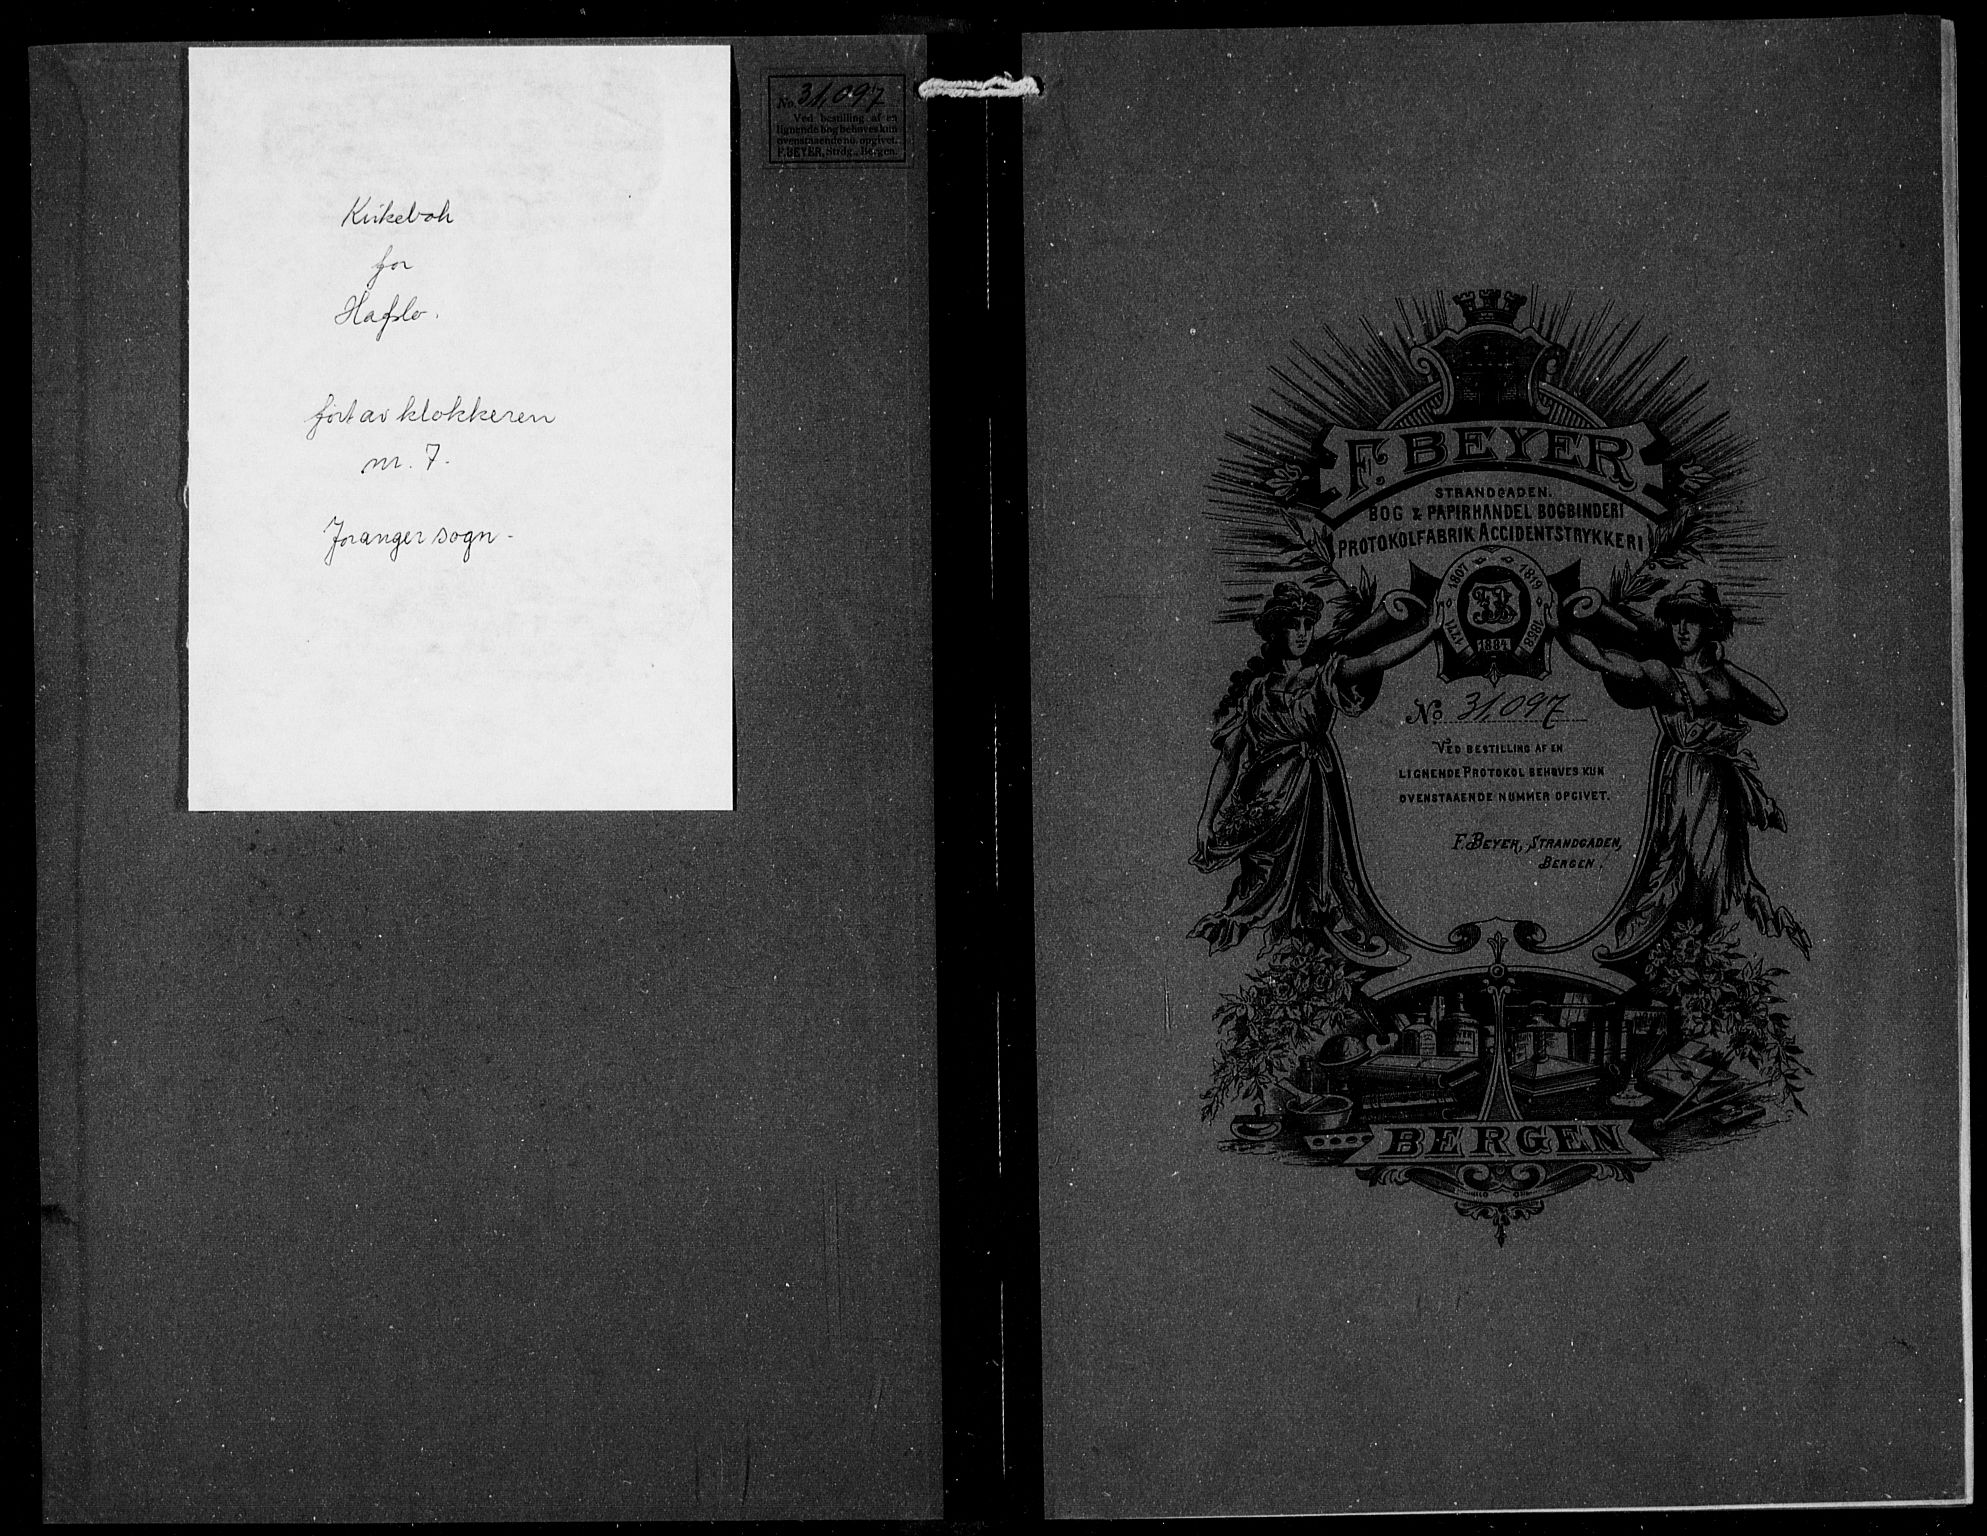 Kirkebok
for
Hafslo.
ført av klokkeren
nr. 7.
Joranger sogn.
No. 31,097
Ved bestilling af en
lignende bog behøves kun
ovenstaaende no. opgivet.
F. BEYER, Strdg., Bergen.
F. BEYER
STRANDGADEN.
BOG & PAPIRHANDEL BOGBINDERI
PROTOKOLFABRIK ACCIDENTSTRYKKERI
1771 1807 1819 1858
1884
No 31,097
VED BESTILLING AF EN
LIGNENDE PROTOKOL BEHØVES KUN
OVENSTAAENDE NUMMER OPGIVET.
F. BEYER, STRANDGADEN,
BERGEN.
BERGEN